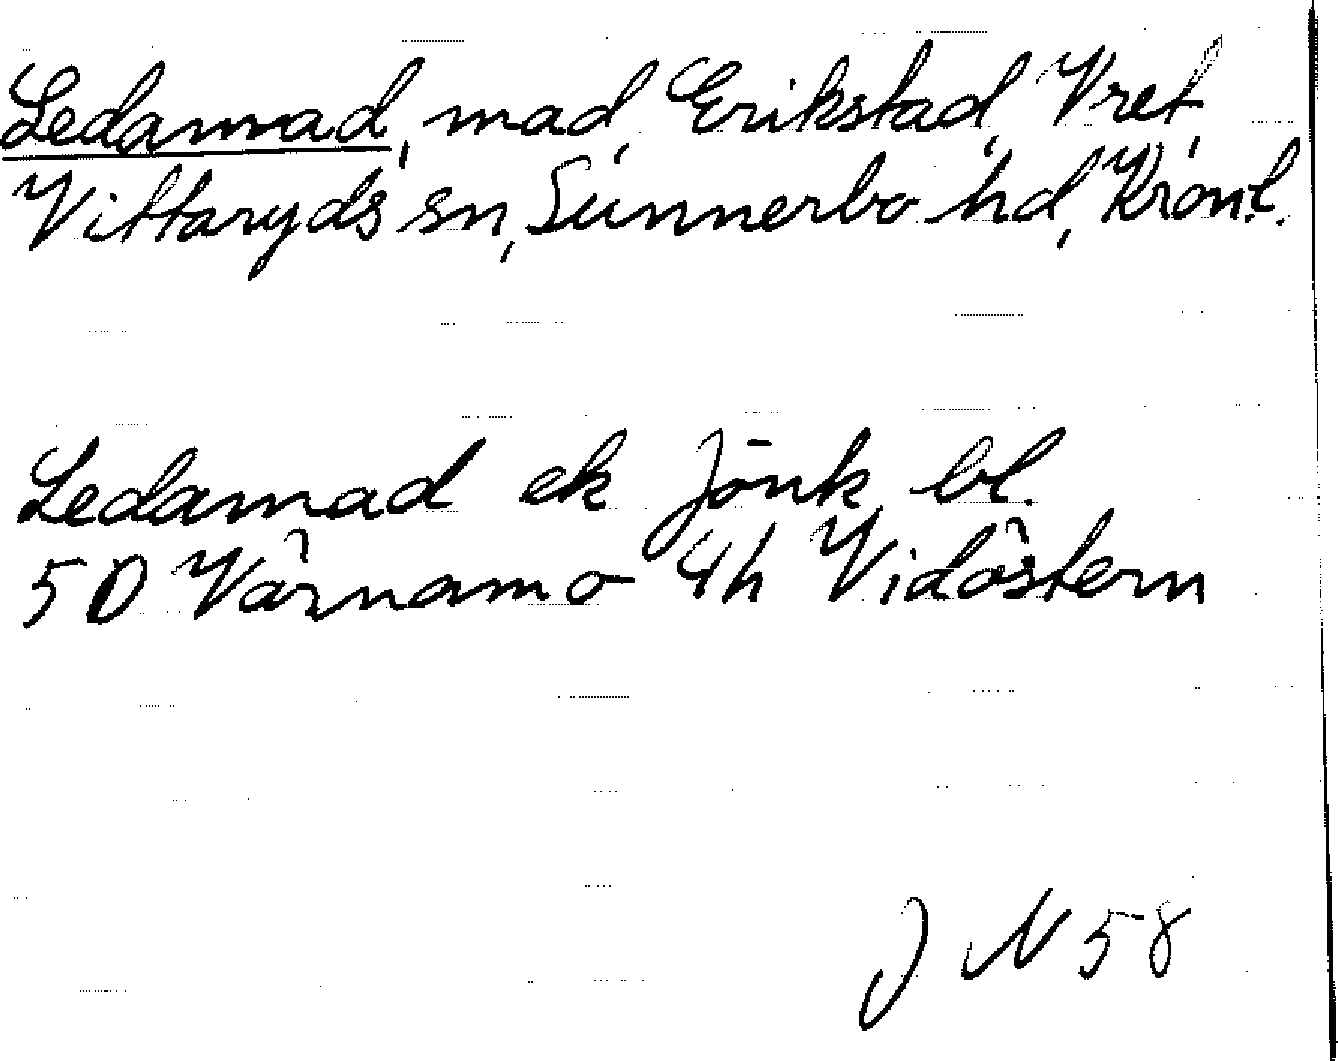 Ledamad, mad, Erikstad, Vret,
Vittaryds sn, Sunnerbo hd, Kronl.
Ledamad ek Jönk bl.
5D Värnamo 4h Vidöstern
J N 58